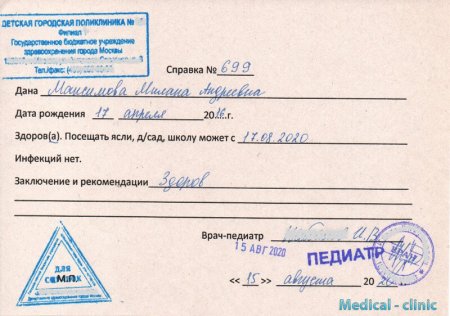 ДЕТСКАЯ ГОРОДСКАЯ ПОЛИКЛИНИКА №
Филиал
Государственное бюджетное учреждение
здравоохранения города Москвы
Тел./факс:
Справка № 699
Дана Максимова Милана Андреевна
Дата рождения 17 апреля 2016г.
Здоров(а). Посещать ясли, д/сад, школу может с 17.08.2020
Инфекций нет.
Заключение и рекомендации Здоров
Врач-педиатр И.В
15 АВГ 2020
ПЕДИАТР
ВРАЧ
ДЛЯ
М.П.
<< 15 >> августа 20
Medical - clinic